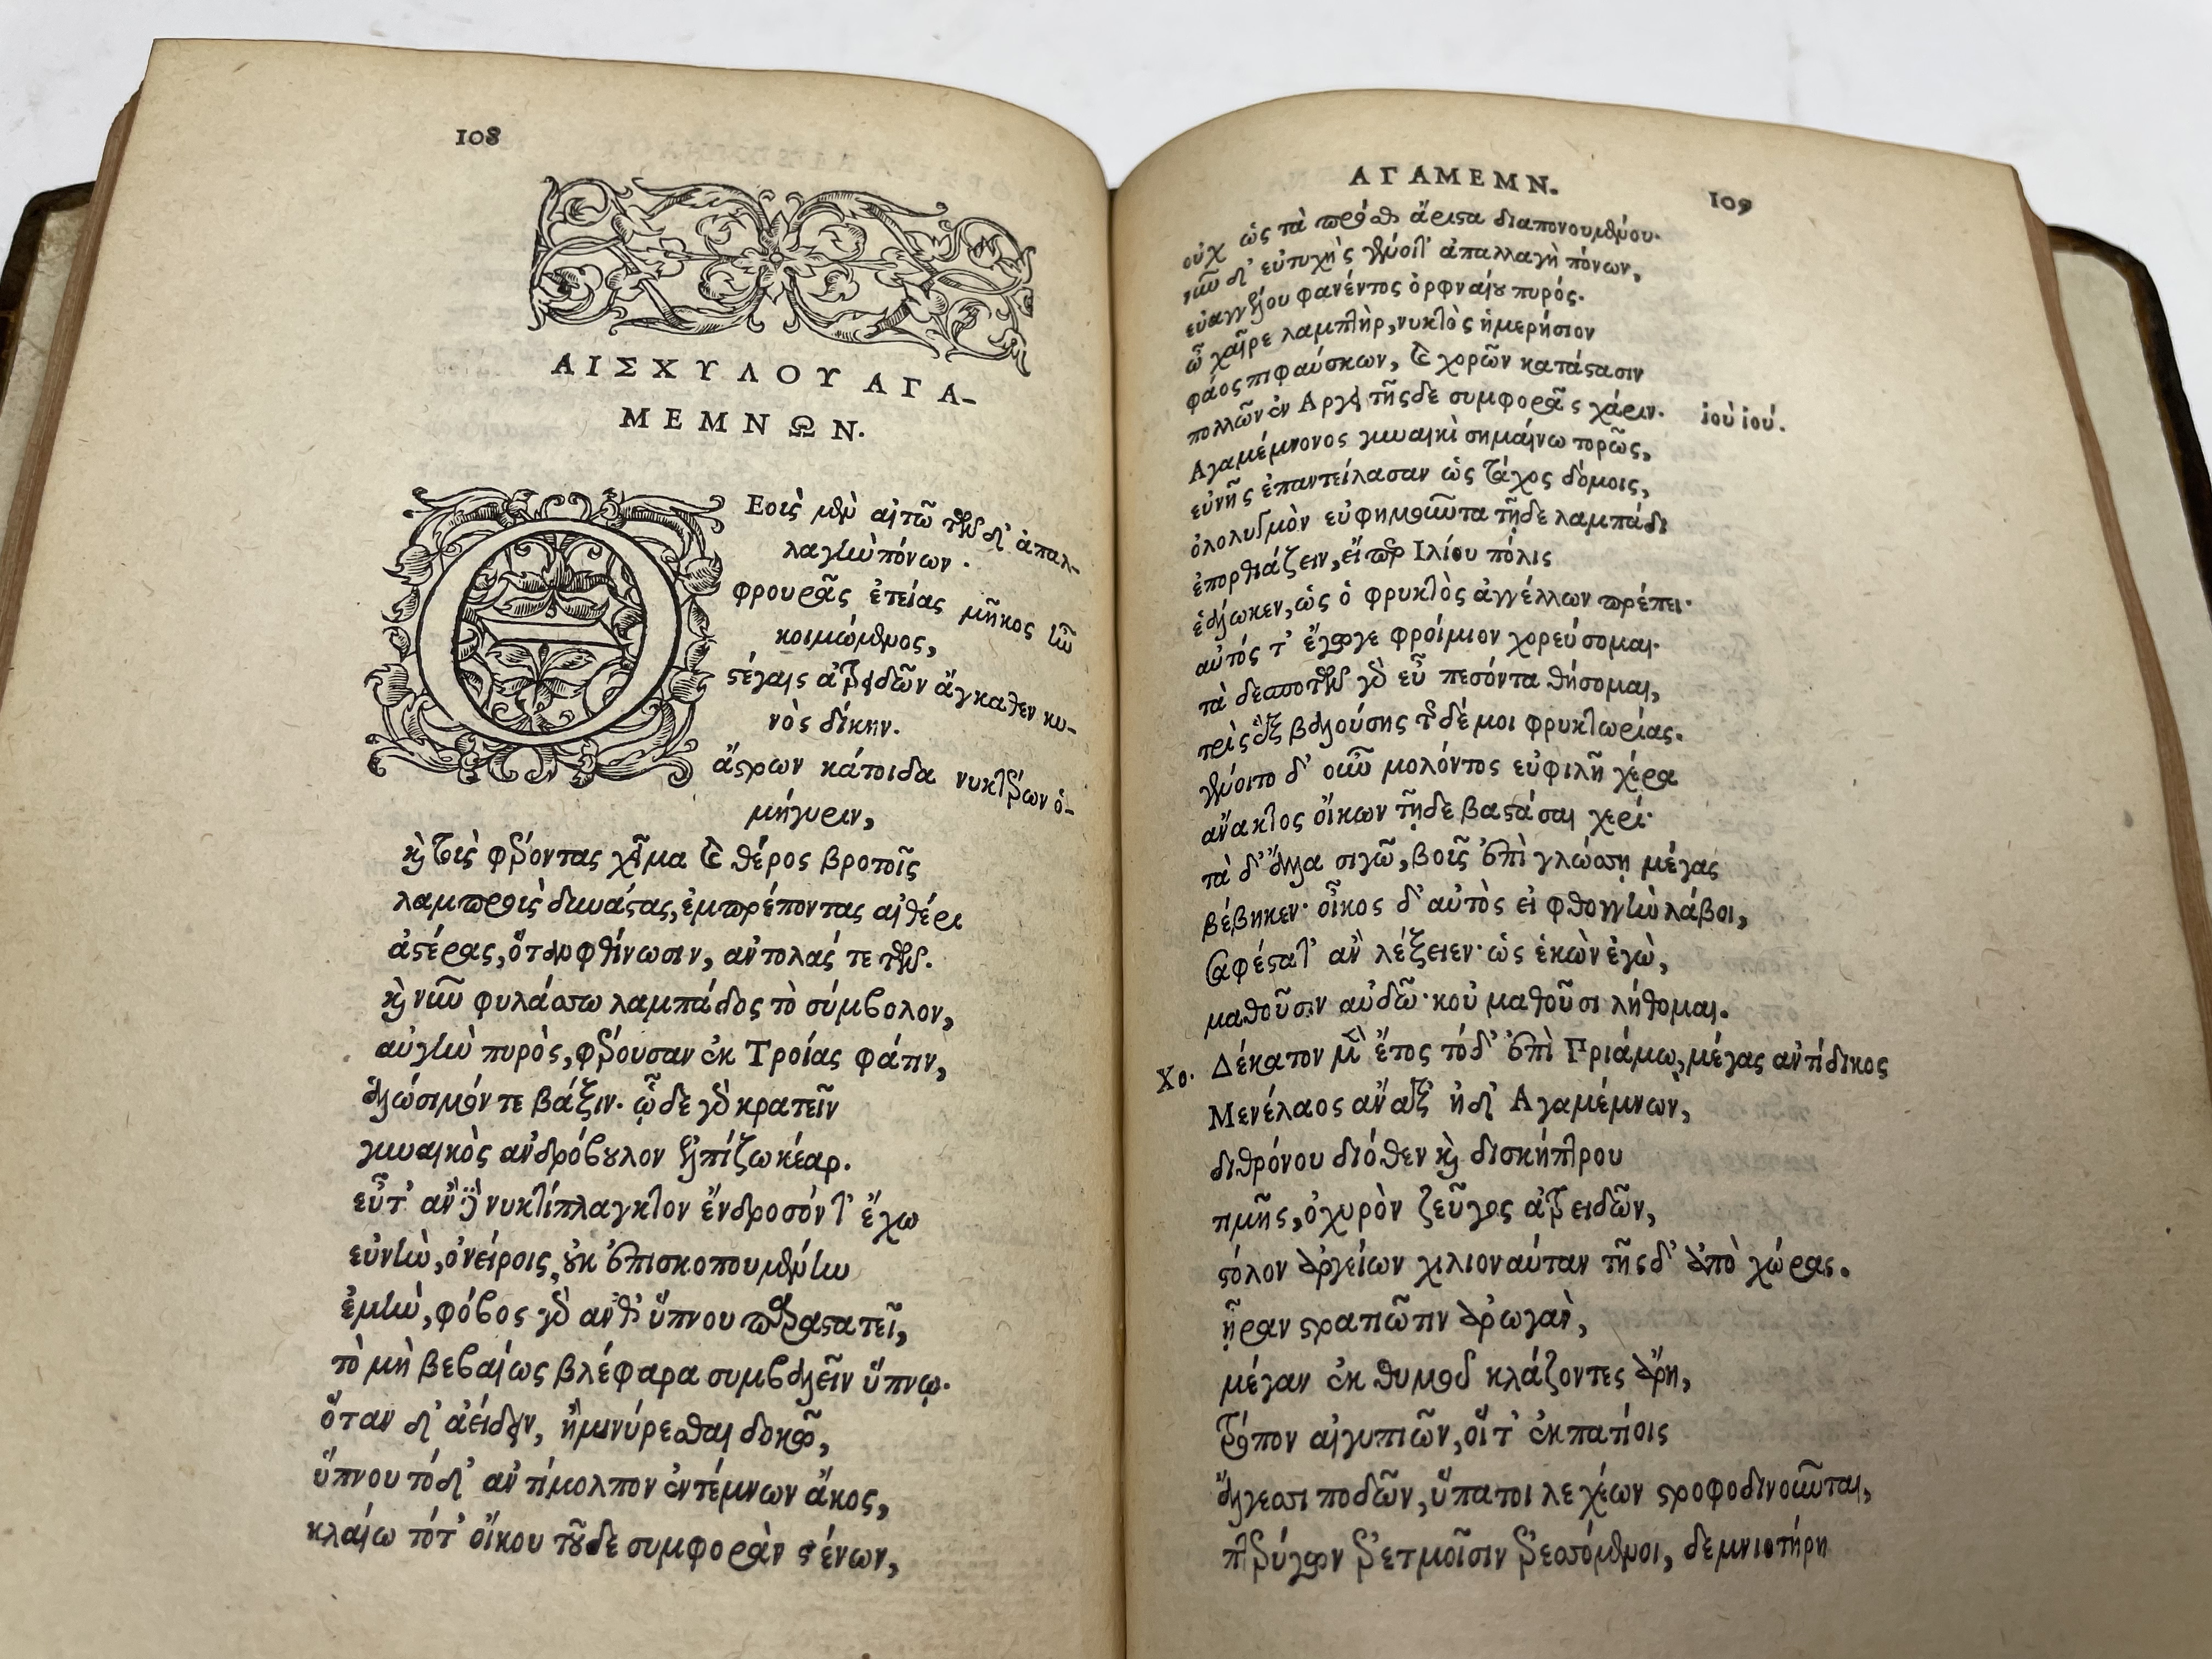 108
ΑΙΣΧΥΛΟΥ ΑΓΑ-
ΜΕΜΝΩΝ.
Θ Εοὺς μὲν αἰτῶ τῶνδ' ἀπαλ-
λαγὴν πόνων.
φρουρᾶς ἐτείας μῆκος ἣν
κοιμώμενος,
στέγαις ἀτρειδῶν ἄγκαθεν κυ-
νὸς δίκην.
ἄστρων κάτοιδα νυκτέρων ὁ-
μήγυριν,
καὶ τοὺς φέροντας χεῖμα καὶ θέρος βροτοῖς
λαμπροὺς δυνάστας, ἐμπρέποντας αἰθέρι
ἀστέρας, ὅταν φθίνωσιν, ἀντολάς τε τῶν.
καὶ νῦν φυλάσσω λαμπάδος τὸ σύμβολον,
αὐγὴν πυρὸς, φέρουσαν ἐκ Τροίας φάτιν,
ἁλώσιμόν τε βάξιν. ὧδε γὰρ κρατεῖν
γυναικὸς ἀνδρόβουλον ἐλπίζω κέαρ.
εὖτ' ἂν δὲ νυκτίπλαγκτον ἔνδροσόν τ' ἔχω
εὐνὴν, ὀνείροις οὐκ ἐπισκοπουμένην
ἐμὴν, φόβος γὰρ ἀνθ' ὕπνου παραστατεῖ,
τὸ μὴ βεβαίως βλέφαρα συμβαλεῖν ὕπνῳ.
ὅταν δ' ἀείδειν, ἢ μινύρεσθαι δοκῶ,
ὕπνου τόδ' ἀντίμολπον ἐντέμνων ἄκος,
κλαίω τότ' οἴκου τοῦδε συμφορὰν στένων,
ΑΓΑΜΕΜΝ. 109
οὐχ ὡς τὰ πρόσθ' ἄριστα διαπονουμένου.
νῦν δ' εὐτυχὴς γένοιτ' ἀπαλλαγὴ πόνων,
εὐαγγέλου φανέντος ὀρφναίου πυρός.
ὦ χαῖρε λαμπτὴρ, νυκτὸς ἡμερήσιον
φάος πιφαύσκων, καὶ χορῶν κατάστασιν
πολλῶν ἐν Αργει τῆςδε συμφορᾶς χάριν. ἰοὺ ἰού.
Αγαμέμνονος γυναικὶ σημαίνω τορῶς,
εὐνῆς ἐπαντείλασαν ὡς τάχος δόμοις,
ὀλολυγμὸν εὐφημοῦντα τῇδε λαμπάδι
ἐπορθιάζειν, εἴπερ Ιλίου πόλις
ἑάλωκεν, ὡς ὁ φρυκτὸς ἀγγέλλων πρέπει·
αὐτός τ' ἔγωγε φροίμιον χορεύσομαι.
τὰ δεσποτῶν γὰρ εὖ πεσόντα θήσομαι,
τρὶς ἓξ βαλούσης τῆςδέ μοι φρυκτωρίας.
γένοιτο δ' οὖν μολόντος εὐφιλῆ χέρα
ἄνακτος οἴκων τῇδε βαστάσαι χερί·
τὰ δ' ἄλλα σιγῶ, βοῦς ἐπὶ γλώσσῃ μέγας
βέβηκεν· οἶκος δ' αὐτὸς εἰ φθογγὴν λάβοι,
σαφέστατ' ἂν λέξειεν· ὡς ἑκὼν ἐγὼ,
μαθοῦσιν αὐδῶ· κοὐ μαθοῦσι λήθομαι.
Χο. Δέκατον μὲν ἔτος τόδ' ἐπὶ Πριάμῳ, μέγας ἀντίδικος
Μενέλαος ἄναξ ἠδ' Αγαμέμνων,
διθρόνου διόθεν καὶ δισκήπτρου
τιμῆς, ὀχυρὸν ζεῦγος ἀτρειδῶν,
στόλον ἀργείων χιλιοναύταν τῆςδ' ἀπὸ χώρας.
ᾖραν στρατιῶτιν ἀρωγὰν,
μέγαν ἐκ θυμοῦ κλάζοντες ἄρη,
τρόπον αἰγυπιῶν, οἵτ' ἐκπατίοις
ἄλγεσι ποδῶν, ὕπατοι λεχέων στροφοδινοῦνται,
πτερύγων ἐρετμοῖσιν ἐρεσσόμενοι, δεμνιοτήρη